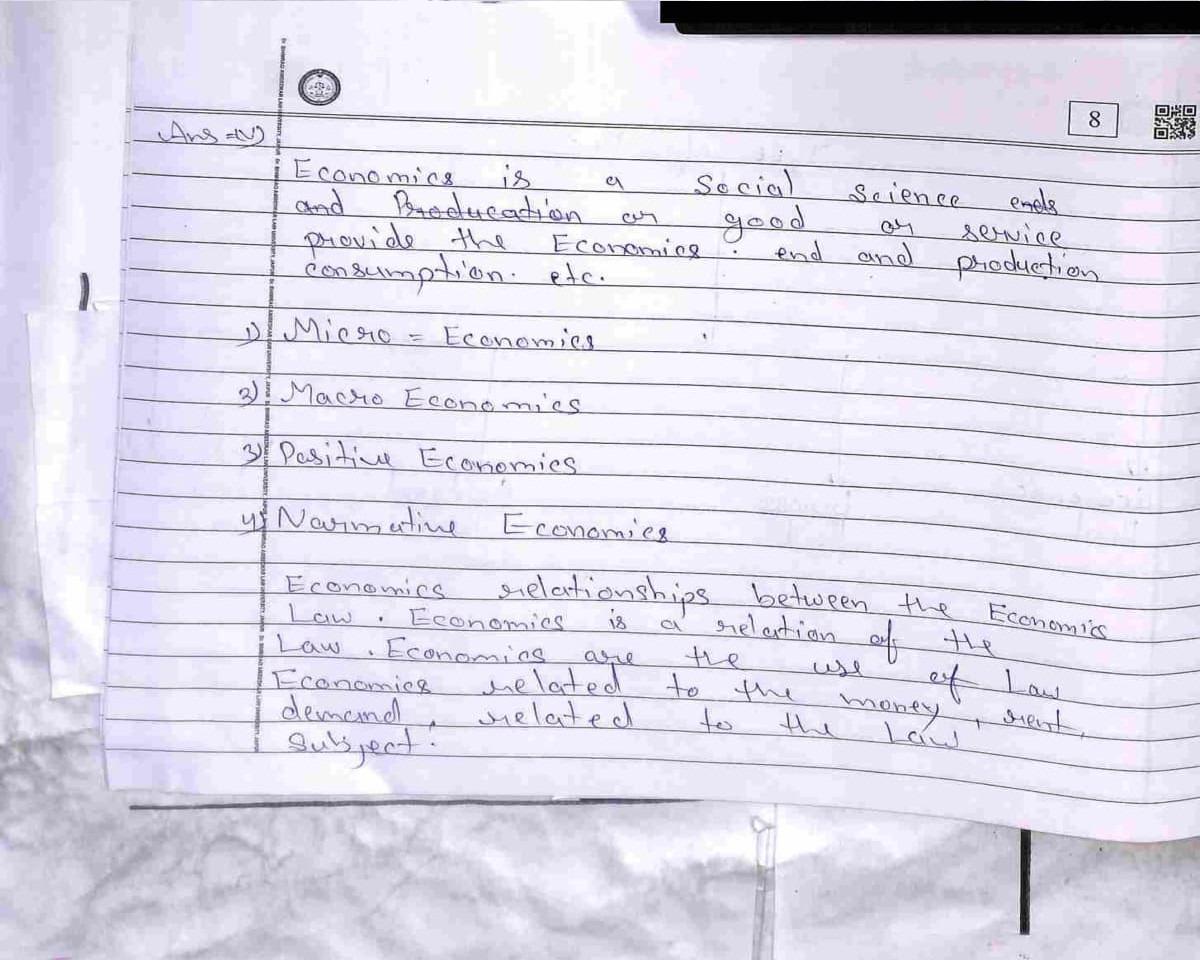 8
Ans =(V)
Economics is a Social Science ends
and Producation or good or service
provide the Economics. end and production
consumption. etc.
1) Micro = Economics
2) Macro Economics
3) Positive Economics
4) Normative Economics
Economics relationships between the Economics
Law. Economics is a relation of the
Law. Economics are the use of Law
Economics related to the money, rent,
demand, related to the Law
Subject.